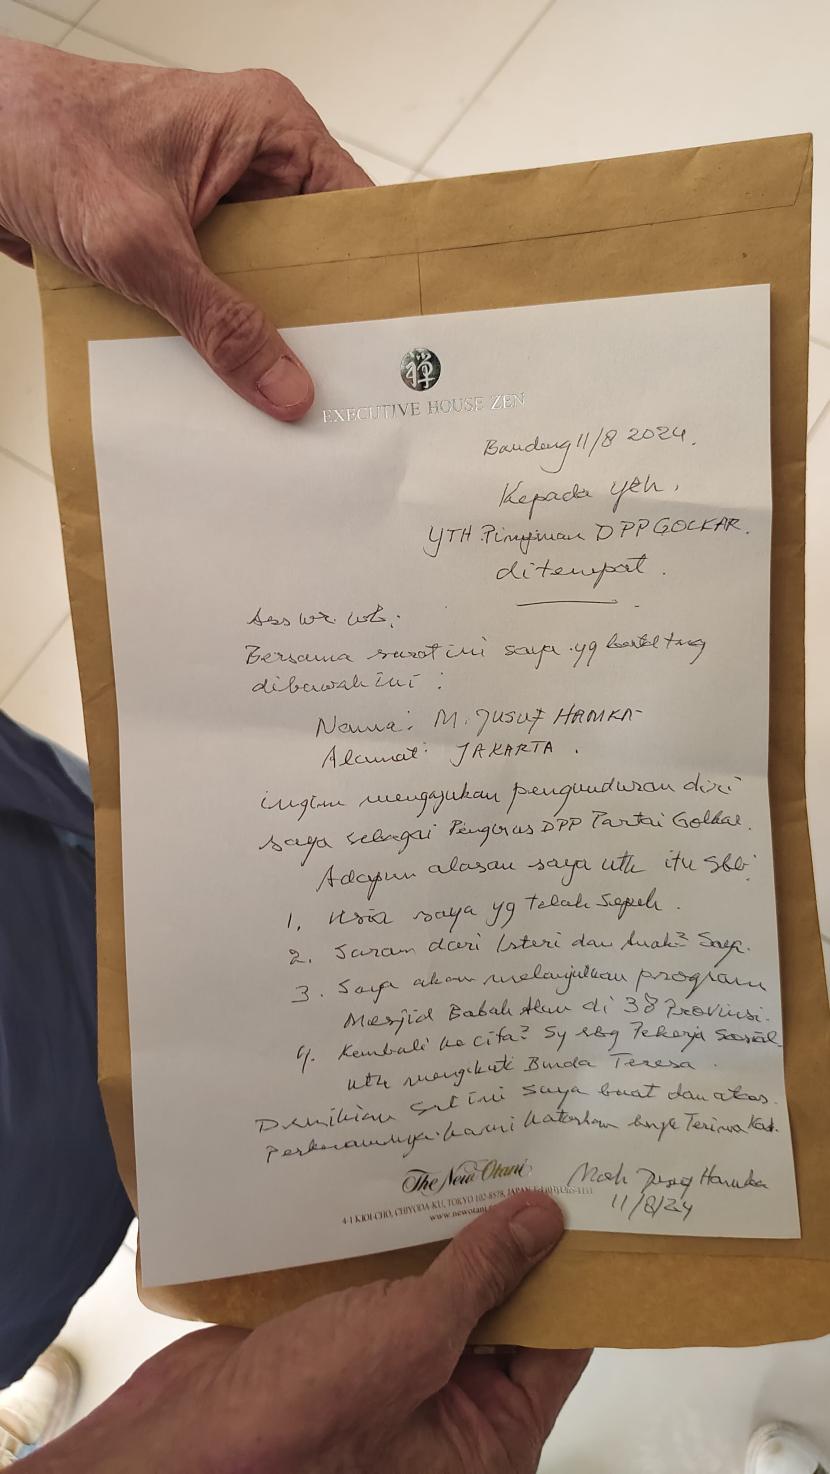 禅
EXECUTIVE HOUSE ZEN
Bandung 11/8 2024.
Kepada yth,
YTH Pimpinan DPP GOLKAR.
ditempat.
Ass wr. wb,
Bersama surat ini saya yg
dibawah ini :
Nama: M. JUSUF HAMKA
Alamat: JAKARTA.
ingin mengajukan pengunduran diri
saya sebagai Pengurus DPP Partai Golkar.
Adapun alasan saya utk itu sbb:
1. Usia saya yg telah sepuh.
2. Saran dari Isteri dan Anak2 Saya.
3. Saya akan melanjutkan program
Mesjid Babah Alun di 38 Provinsi.
4. Kembali ke cita2 Sy sbg Pekerja Sosial
utk mengikuti Bunda Teresa.
Demikian srt ini saya buat dan atas
perkenannya kami haturkan Terima Kasih.
The New Otani
4-1 KIOI-CHO, CHIYODA-KU, TOKYO 102-8578, JAPAN
Moh Jusuf Hamka
11/8/24